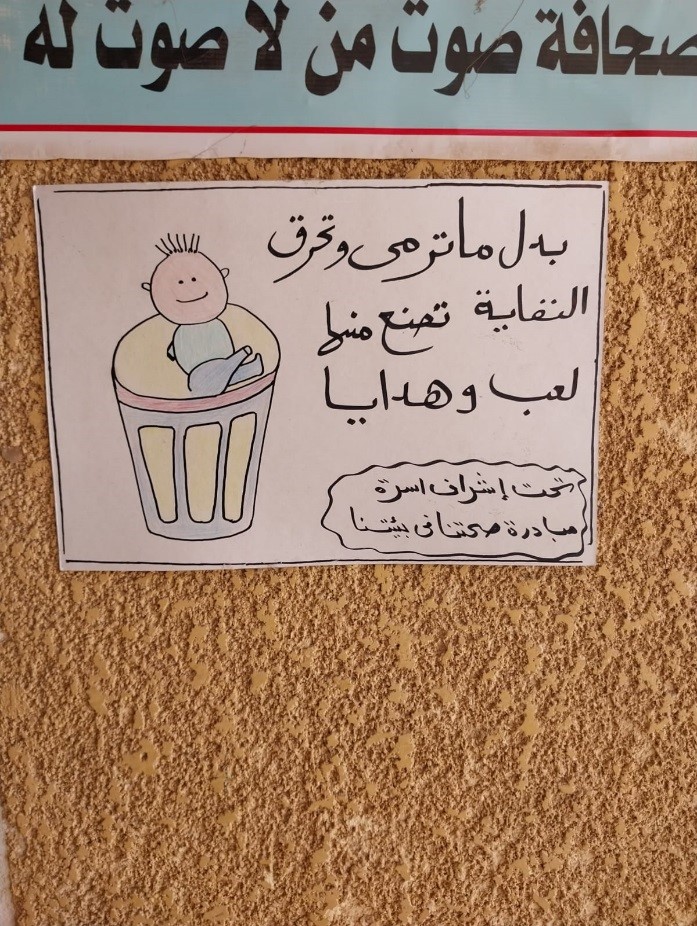 صحافة صوت من لا صوت له
بدل ما ترمى وتحرق
النفاية تصنع منها
لعب وهدايا
تحت إشراف اسرة
مبادرة صحتنا فى بيئتنا